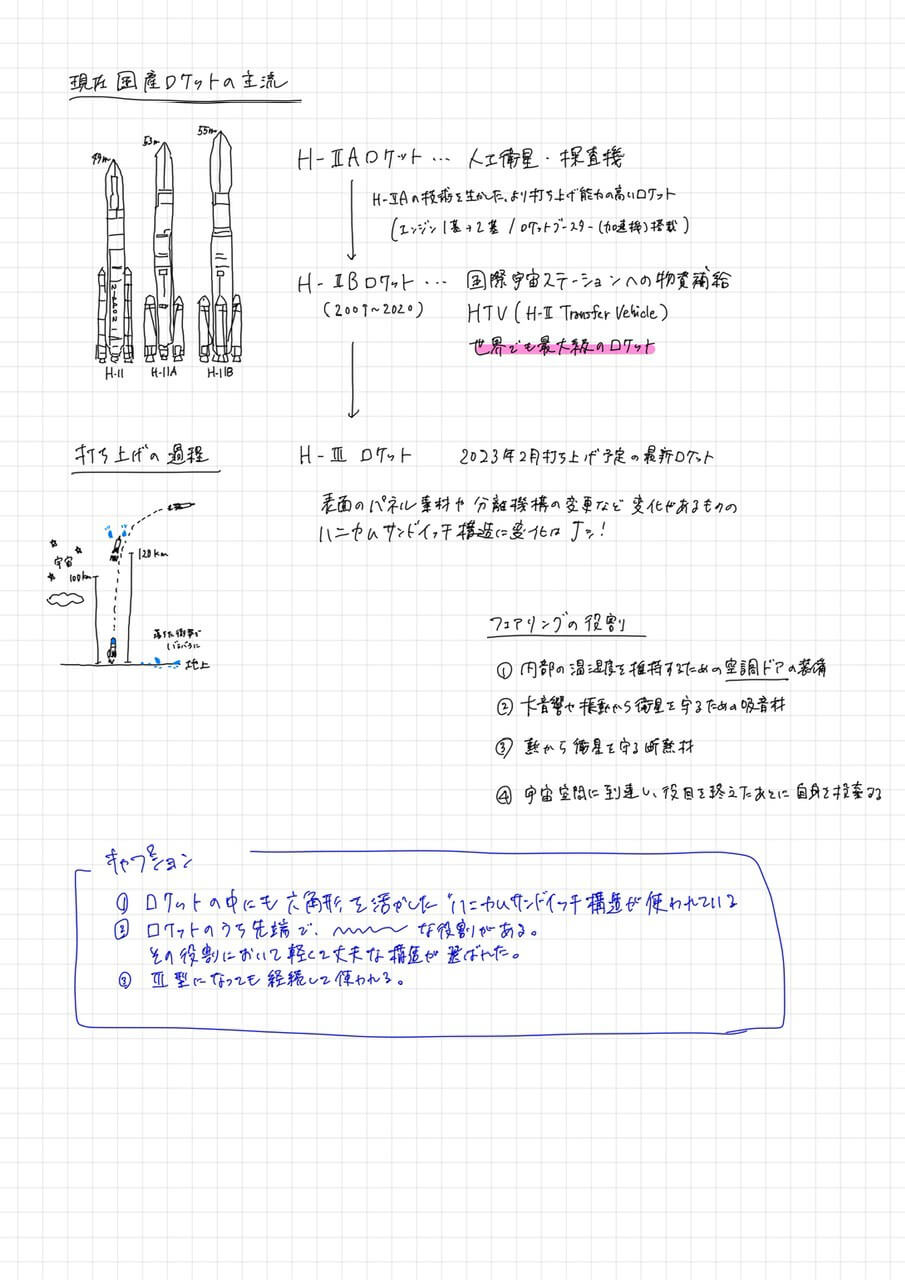 現在 国産ロケットの主流
49m
53m
55m
H-11
H-11A
H-11B
H-ⅡAロケット … 人工衛星・探査機
H-ⅡAの技術を生かした、より打ち上げ能力の高いロケット
(エンジン1基→2基 / ロケットブースター(加速機)搭載)
H-ⅡBロケット … 国際宇宙ステーションへの物資補給
(2009~2020)
HTV (H-Ⅱ Transfer Vehicle)
世界でも最大級のロケット
H-Ⅲ ロケット 2023年2月打ち上げ予定の最新ロケット
表面のパネル素材や分離機構の変更など変化があるものの
ハニカムサンドイッチ構造に変化はナシ!
打ち上げの過程
宇宙
100km
120km
落ちた衝撃で
バラバラに
地上
フェアリングの役割
① 内部の温湿度を維持するための空調ドアの装備
② 大音響や振動から衛星を守るための吸音材
③ 熱から衛星を守る断熱材
④ 宇宙空間に到達し、役目を終えたあとに自身を投棄する
キャプション
① ロケットの中にも六角形を活かしたハニカムサンドイッチ構造が使われている
② ロケットのうち先端で、 な役割がある。
その役割において軽くて丈夫な構造が選ばれた。
③ Ⅲ型になっても継続して使われる。